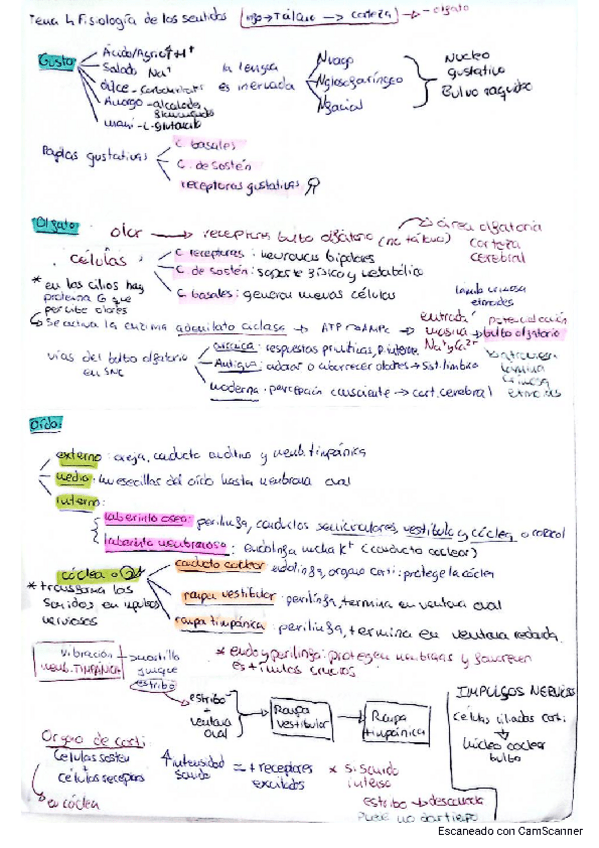 Tema 4 Fisiología de los sentidos (ngo → Tálamo → corteza) → - olfato
Gusto
Ácido/Agrio ↑H+
Salado Na+
dulce - carbohidrat
Amargo - alcaloides
umami - L-glutamato
la lengua
es inervada
N vago
N glosofaríngeo
N facial
Nucleo
gustativo
Bulvo raquideo
Papilas gustativas
c. basales
c. de sostén
receptoras gustativas
Olfato:
olor → receptores bulbo olfatorio (no tálamo)
→ área olfatoria
corteza
cerebral
células
c receptoras: neuronas bipolares
c de sostén: soporte físico y metabólico
c basales: generan nuevas células
* en los cilios hay
proteina G que
percibe olores
lamina cribosa
etmoides
↳ Se activa la enzima adenilato ciclasa → ATP → AMPc → entrada
masiva
Na+ y Ca2+
→ potencial acción
bulbo olfatorio
atraviesan
lamina
cribosa
etmoides
vias del bulbo olfatorio
en SNC
arcaica: respuestas primitivas, p. interna
Antigua: adorar o aborrecer olores → sist. limbico
moderna: percepción consciente → cort. cerebral
Oído:
externo: oreja, conducto auditivo y memb. timpánica
medio: huesecillos del oído hasta membrana oval
interno:
laberinto oseo: perilinfa, conductos semicirculares, vestíbulo y cóclea o caracol
laberinto membranoso: endolinfa mucha K+ (conducto coclear)
cóclea o
* transforma los
sonidos en impulsos
nerviosos
conducto coclear endolinfa, organo corti: protege la cóclea
rampa vestibular: perilinfa, termina en ventana oval
rampa timpánica: perilinfa, termina en ventana redonda.
vibración
MEMB. TIMPÁNICA
→ martillo
yunque
estribo
* endo y perilinfa: protegen membranas y favorecen
estímulos
→ estribo
+
ventana
oval
Rampa
vestibular
→
Rampa
timpánica
IMPULSOS NERVIOSOS
células ciliadas corti
↓
núcleo coclear
bulbo
Organo de corti
Células sosten
+
células receptoras
→ en cóclea
↑ intensidad
sonido
= + receptores
excitados
* si sonido
intenso
estribo → descuelga
puede no dar tiempo
Escaneado con CamScanner